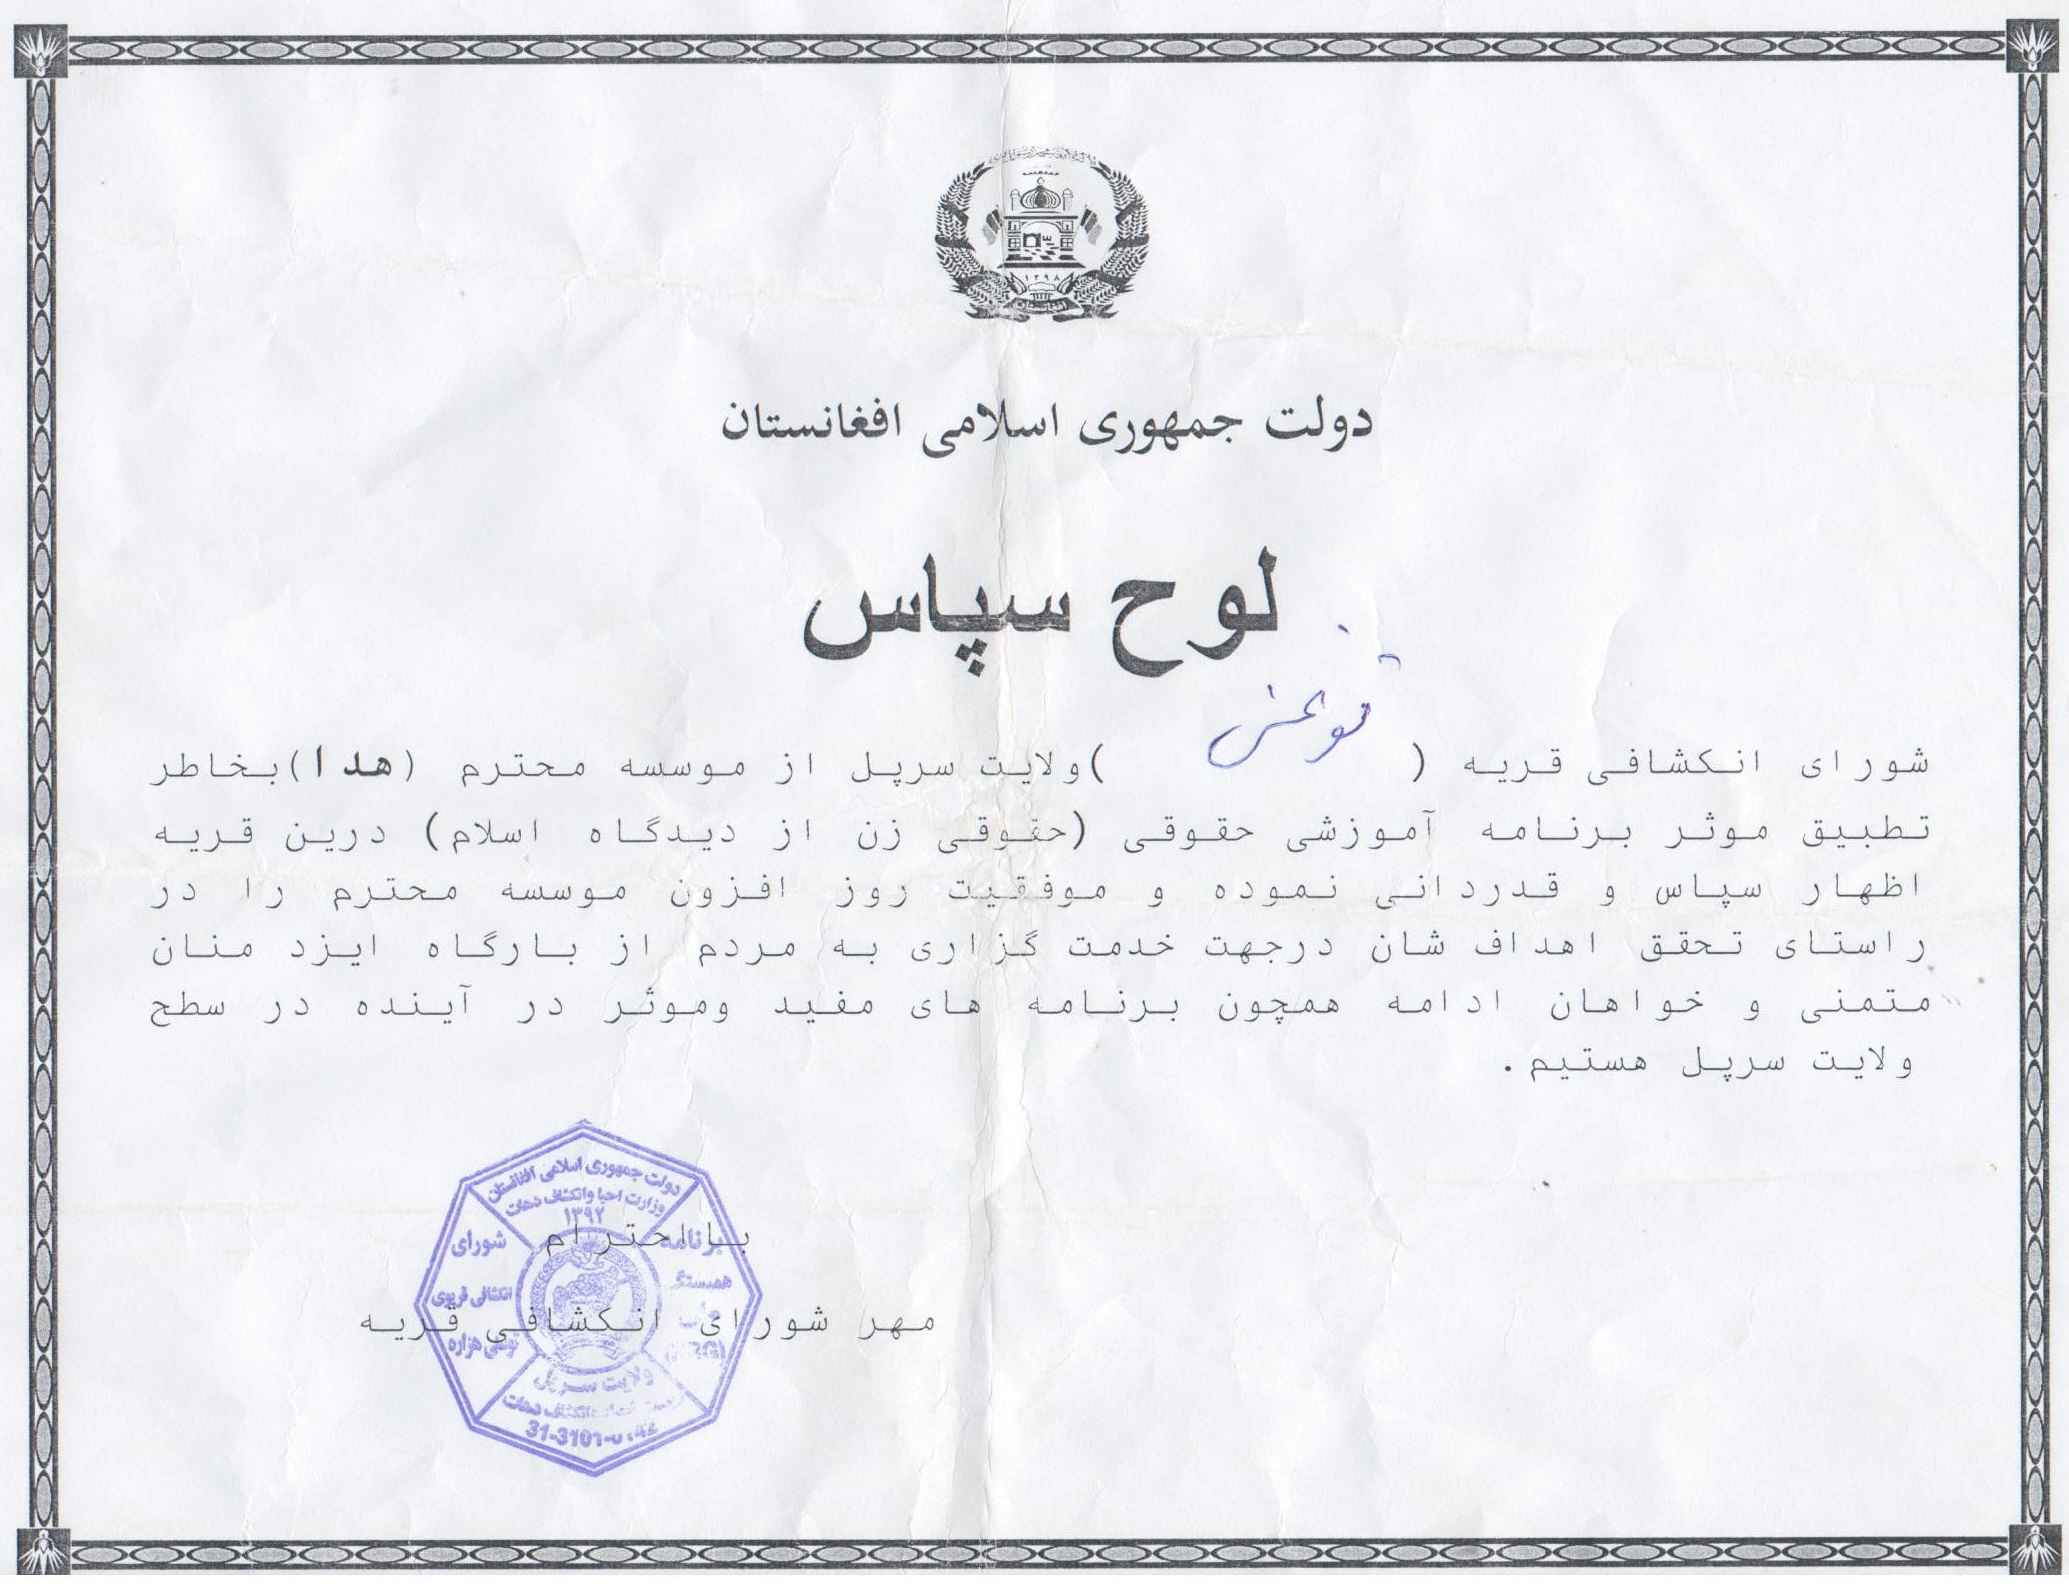 ۱۳۹۸
افغانستان
دولت جمهوری اسلامی افغانستان
لوح سپاس
شورای انکشافی قریه ( ) ولایت سرپل از موسسه محترم (هدا) بخاطر
تطبیق موثر برنامه آموزشی حقوقی (حقوقی زن از دیدگاه اسلام) درین قریه
اظهار سپاس و قدردانی نموده و موفقیت روز افزون موسسه محترم را در
راستای تحقق اهداف شان درجهت خدمت گزاری به مردم از بارگاه ایزد منان
متمنی و خواهان ادامه همچون برنامه های مفید وموثر در آینده در سطح
ولایت سرپل هستیم.
بااحترام
مهر شورای انکشافی قریه
دولت جمهوری اسلامی افغانستان
وزارت احیا وانکشاف دهات
۱۳۹۲
برنامه
همبستگی
شورای
انکشافی قریوی
هزاره
ولایت سرپل
انکشاف دهات
31-3101-